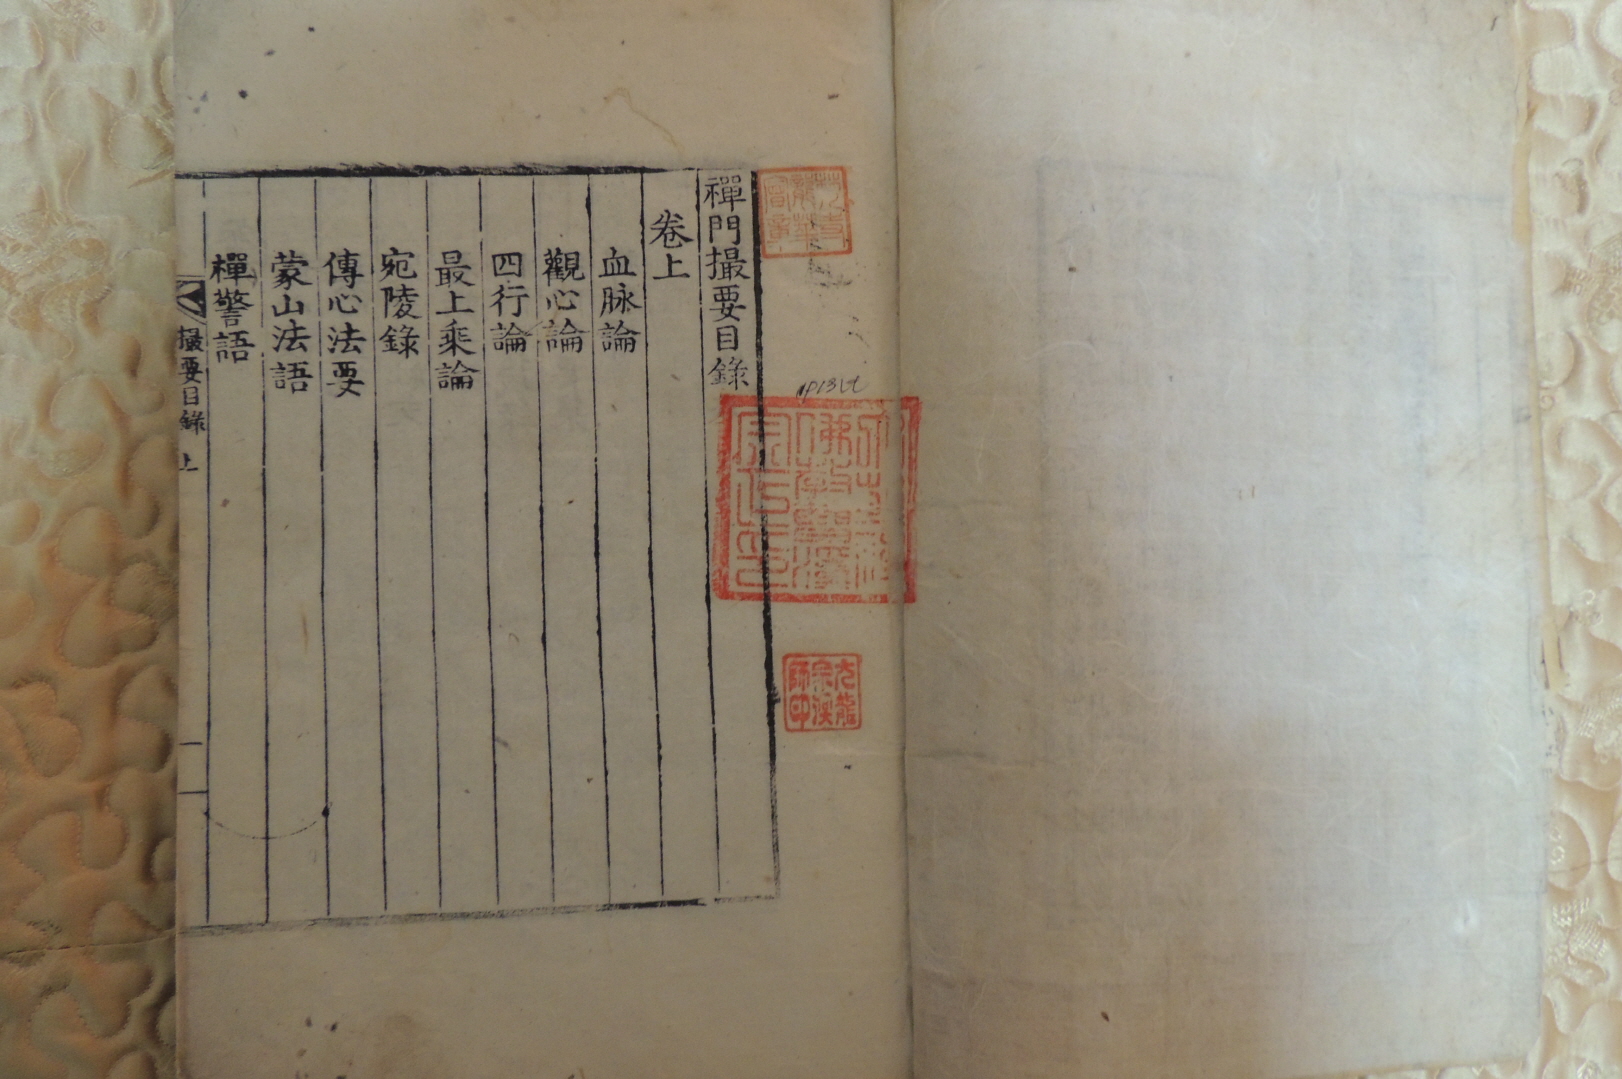 禪門撮要目錄
卷上
血脉論
觀心論
四行論
最上乘論
宛陵錄
傳心法要
蒙山法語
禪警語
撮要目錄 上
一
九龍